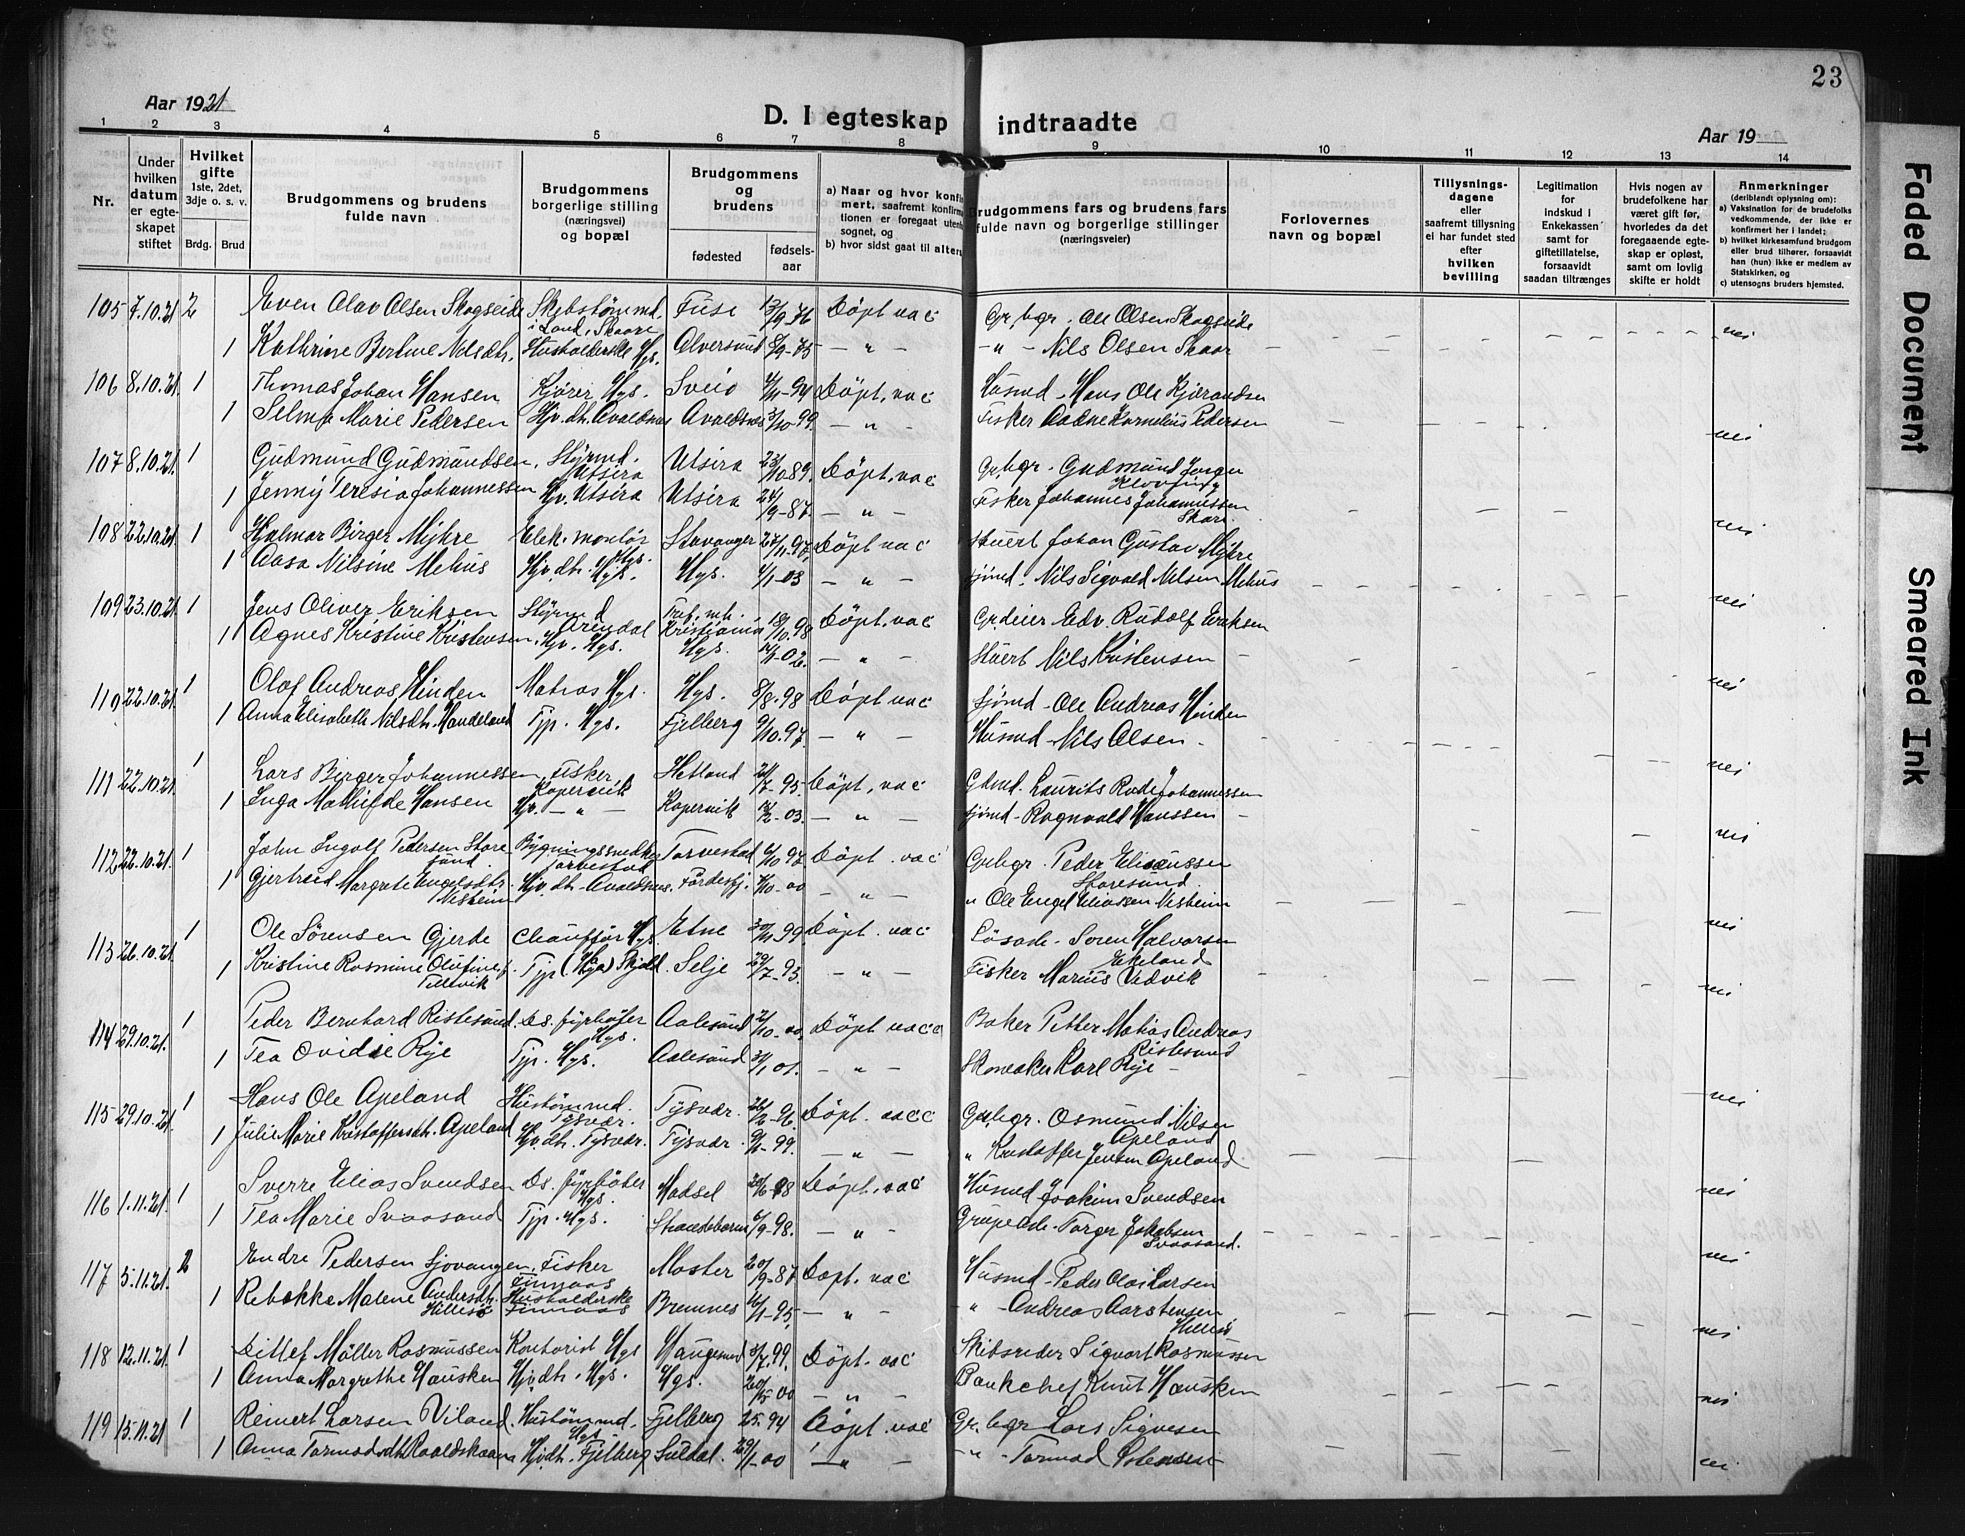 23
Aar 1921
D. I egteskap indtraadte
Aar 19
1 2 3 4 5 6 7 8 9 10 11 12 13 14
Nr.
Under hvilken datum er egteskapet stiftet
Hvilket gifte 1ste, 2det, 3dje o. s. v.
Brdg. Brud
Brudgommens og brudens fulde navn
Brudgommens borgerlige stilling (næringsvei) og bopæl
Brudgommens og brudens
fødested
fødselsaar
a) Naar og hvor konfir
mert, saafremt konfirma
tionen er foregaat utenfo
sognet, og
b) hvor sidst gaat til alters
Brudgommens fars og brudens fars fulde navn og borgerlige stillinger (næringsveier)
Forlovernes navn og bopæl
Tillysningsdagene eller saafremt tillysning ei har fundet sted efter hvilken bevilling
Legitimation for indskud i Enkekassen samt for giftetillatelse, forsaavidt saadan tiltrænges
Hvis nogen av brudefolkene har været gift før, hvorledes da det foregaaende egteskap er opløst, samt om lovlig skifte er holdt
Anmerkninger (deriblandt oplysning om):
a) Vaksination for de brudefolks vedkommende, der ikke er konfirmert her i landet;
b) hvilket kirkesamfund brudgom eller brud tilhører, forsaavidt han (hun) ikke er medlem av Statskirken, og
c) utensogns bruders hjemsted.
105 7.10.21 2 Even Olav Olsen Skogseide Fuse 13/9.76 Döpt vac Gr.bgr. Ole Olsen Skogseide
1 Kathrine Bertine Nilsdtr. Husholderske Hgs. Alversund 5/9-75 — „ — — „ — Nils Olsen Skaar nei
106 8.10.21. 1 Thomas Johan Hansen Kjörer Hgs. Sveio 4/11-94 Döpt, vac Husmd - Hans Ole Kjærandsen
1 Selma Marie Pedersen Hjv.dtr. Avaldsnes Avaldsnes 31/10-99. — „ — Fisker Aadne Kornelius Pedersen nei
107 8.10.21. 1 Gudmund Gudmundsen, Styrmd. Utsira Utsira 23/10 89. Döpt, vac Gr.bgr. Gudmund Jorgen Klovning
1 Jenny Teresia Johannessen Hjv. Utsira Utsira 24/9-87 — „ — Fisker Johannes Johannessen Skare nei
108 22.10.21. 1 Hjalmar Birger Myhre Elek. montör Hgs. Stavanger 27/11.97, Döpt vac Stuert Johan Gustav Myhre
1 Aasa Nilsine Mehus Hjv.dtr. Hgs. Hgs. 4/1-03 — „ — Sjömd. Nils Sigvald Nilsen Mehus nei
109 23.10.21. 1 Jens Oliver Eriksen Styrmd Arendal Kristiania 18/10.98 Döpt, vac Gr.deier Edv. Rudolf Eriksen
1 Agnes Kristine Kristensen Hjv. Hgs. Hgs. — „ — Stuert Nils Kristensen nei
110 22.10.21. 1 Olaf Andreas Hinden Matros Hgs. Hgs. 5/8-98 Döpt vac Sjömd - Ole Andreas Hinden
1 Anna Elisabeth Nilsdtr. Handeland Tjp. Hgs. Fjelberg 9/10.97, — „ — Husmd - Nils Olsen nei
111 22.10.21. 1 Lars Birger Johannessen Fisker Kopervik Hetland 21/7-95 Döpt, vac Gdmd. Laurits Rode Johannessen
1 Inga Mathilde Hansen Hjv. — „ — Kopervik 12/2-03. — „ — Sjömd - Rognvald Hanssen nei
112 22.10.21. 1 John Ingolf Pedersen Storesund Bygningssnedker Torvestad Torvestad 6/10 97. Döpt. vac Gr.bgr. Peder Eliassen Storesund
1 Gjertrud Margrete Engelsdtr. Nisheim Hjv.dtr - Avaldsnes. Fördesfj. 4/10-00 — „ — „ Ole Engel Eliassen Nisheim nei
113 26.10.21. 1 Ole Sörensen Gjerde Chaufför Hgs. Etne 30/11 99. Döpt. vac Lösarb. Soren Halvorsen Ekeland
1 Kristine Rasmine Olufine Tjp (Hga) Skjold. Selje 29/7-93. — „ — Fisker Marius Vedvik nei
114 29.10.21. 1 Peder Bernhard Ristesund Ds. fyrböter Hgs. Aalesund 21/10-00, Döpt vac Baker Petter Matias Andreas Ristesund
1 Tea Ovidie Rye Tjp. Hgs. Aalesund 31/1 01. — „ — Skomaker Karl Rye nei
115 29.10.21. 1 Hans Ole Apeland Hustömmd. Tysvær. Tysvær. 26/2-96. Döpt. vac Gr.bgr. Osmund Nilsen Apeland
1 Julie Marie Kristoffersdtr. Apeland Hjv.dtr. Tysvær. Tysvær. 9/1-99. — „ — „ Kristoffer Jensen Apeland. nei
116 1.11.21. 1 Sverre Elias Svendsen Ds. fyrböter Hgs. Hadsel 20/6-98 Döpt, vac Husmd Joakim Svendsen
1 Tea Marie Svaasand Tjp. Hgs. Strandebarm 6/9-98. — „ — Grubearb. Torger Jakobsen Svaasand. nei
117 5.11.21. 2 Endre Pedersen Sjovangen, Fisker Finnaas Moster 20/9-87 Döpt. vac Husmd - Peder Olai Larsen
1 Rebekka Malene Andersdtr. Hillesö Husholderske Finnaas Bremnes 16/1-95. — „ — — „ — Andreas Aarstensen Hillesö nei
118 12.11.21. 1 Ditlef Möller Rasmussen Kontorist Hgs Haugesund 3/7.99. Döpt. vac Skibsreder Sigvart Rasmussen
1 Anna Margrethe Hausken Hjv.dtr. Hgs. Hgs. 20/5 00 — „ — Bankchef Knut Hausken nei
119 15.11.21 1 Reinert Larsen Viland. Hustömmd. Hgs Fjelberg 25.94 Döpt vac Gr.bgr Lars Sigvesen
1 Anna Tormodsdtr Roaldskaar Hjv.dtr. Fjelberg Suldal. 29/1-00 — „ — — „ — Tormod nei
Faded Document
Smeared Ink